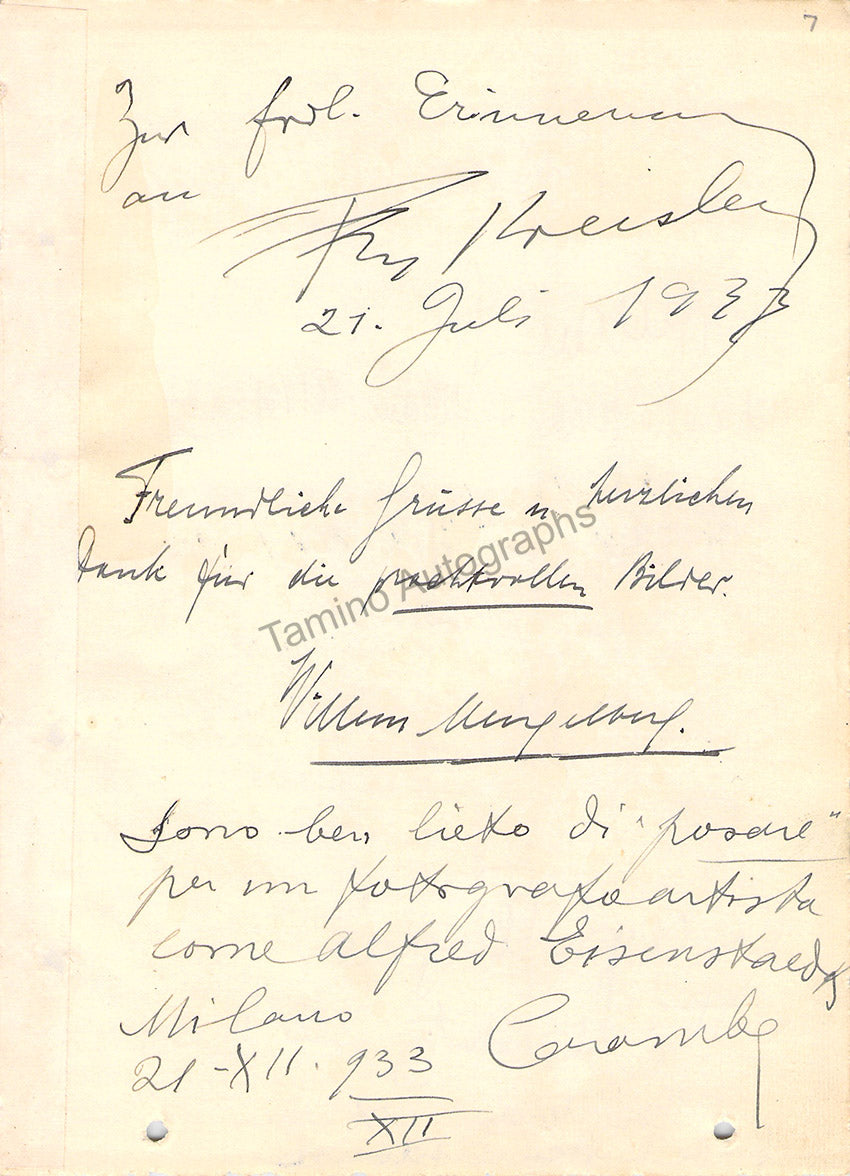 7
Zur frdl. Erinnerung
an
Fritz Kreisler
21. Juli 1933
Freundliche Grüsse u herzlichen
Dank für die prachtvollen Bilder.
Tamino Autographs
Willem Mengelberg.
Sono ben lieto di "posare"
per un fotografo artista
come Alfred Eisenstaedt
Milano
21-XII. 933 Caramba
XII